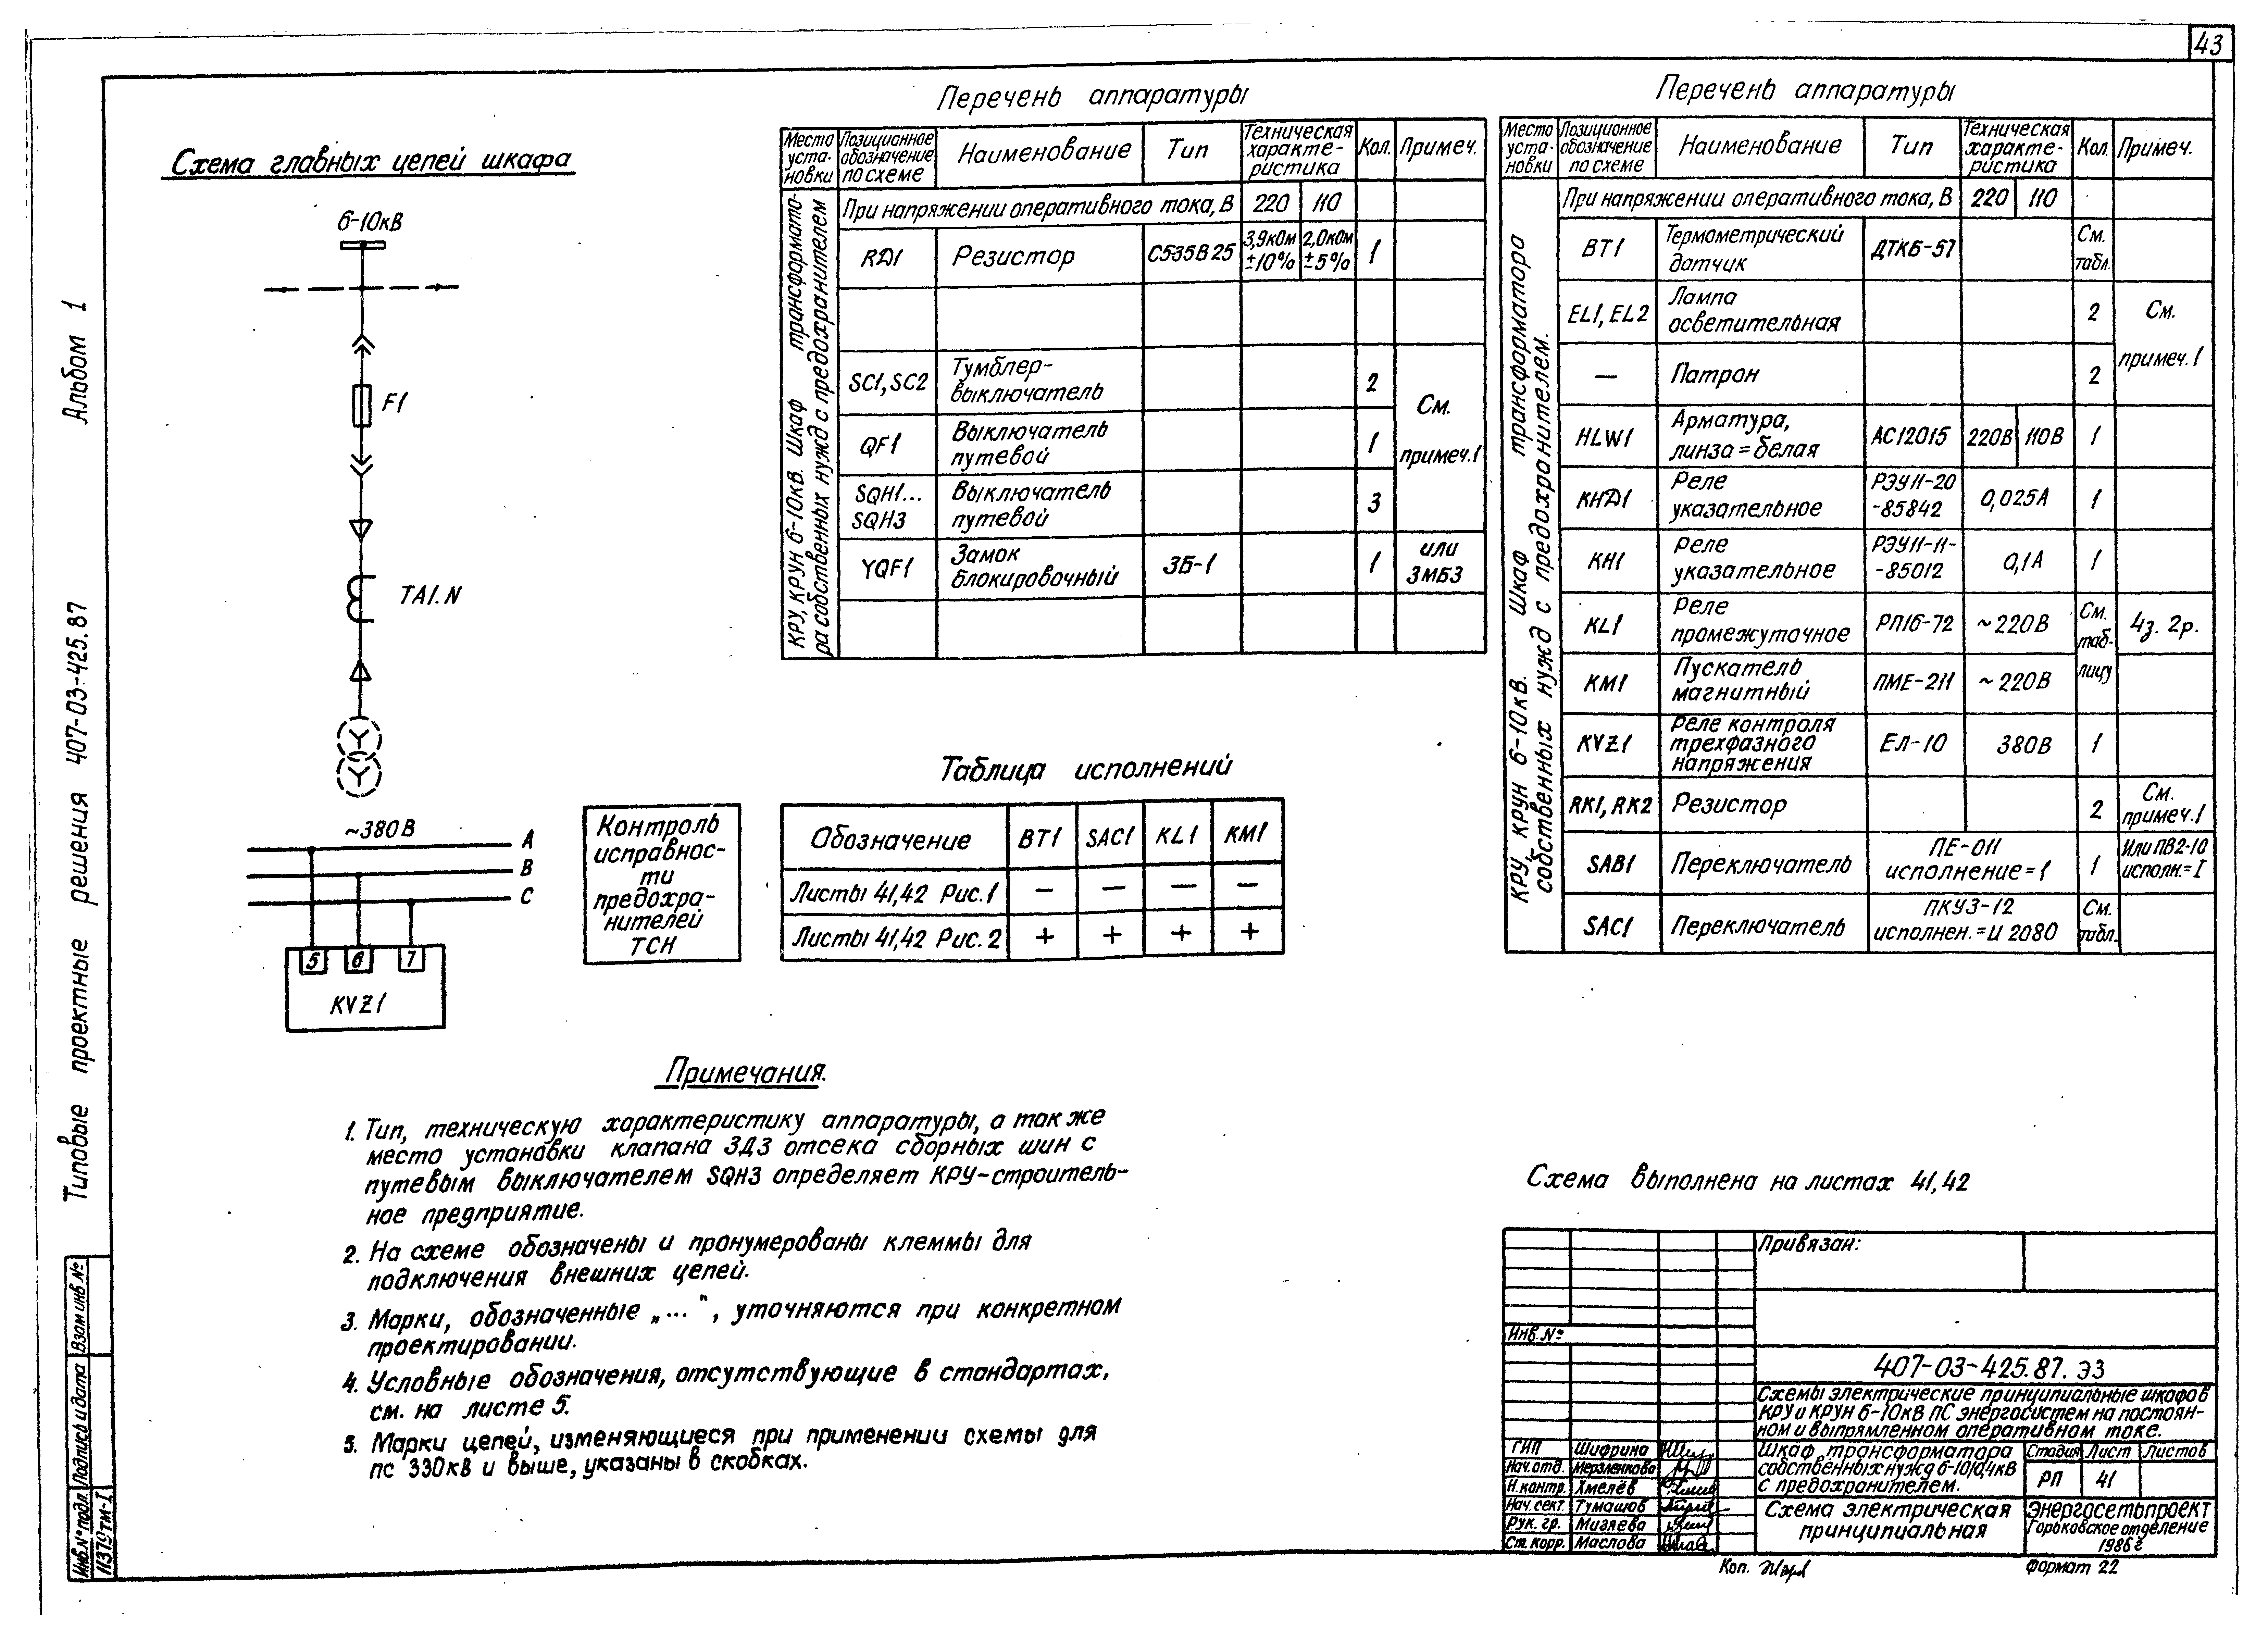 43
Альбом 1
Типовые проектные решения 407-03-425.87
Взам инв №
Подпись и дата
Инв.№ подл.
11379тм-I
Схема главных цепей шкафа
6-10кВ
F1
TA1.N
~380В
A
B
C
5 6 7
KVZ1
Контроль
исправнос-
ти
предохра-
нителей
ТСН
Перечень аппаратуры
Место установки | Позиционное обозначение по схеме | Наименование | Тип | Техническая характе-ристика | Кол. | Примеч.
КРУ, КРУН 6-10кВ. Шкаф трансформато-
ра собственных нужд с предохранителем
При напряжении оперативного тока, В | 220 | 110
RД1 | Резистор | С535В25 | 3,9кОм ±10% | 2,0кОм ±5% | 1
SC1, SC2 | Тумблер-выключатель | 2
QF1 | Выключатель путевой | 1
SQH1... SQH3 | Выключатель путевой | 3
См. примеч.1
YQF1 | Замок блокировочный | ЗБ-1 | 1 | или ЗМБЗ
Таблица исполнений
Обозначение | BT1 | SAC1 | KL1 | KM1
Листы 41,42 Рис.1 | − | − | − | −
Листы 41,42 Рис.2 | + | + | + | +
Перечень аппаратуры
Место уста-новки | Позиционное обозначение по схеме | Наименование | Тип | Техническая характе-ристика | Кол. | Примеч.
КРУ, КРУН 6-10кВ. Шкаф трансформатора
собственных нужд с предохранителем.
При напряжении оперативного тока, В | 220 | 110
BT1 | Термометрический датчик | ДТКБ-57 | См. табл.
EL1, EL2 | Лампа осветительная | 2 | См.
— | Патрон | 2 | примеч.1
HLW1 | Арматура, линза=белая | АС12015 | 220В | 110В | 1
KHД1 | Реле указательное | РЭУ11-20-85842 | 0,025А | 1
KH1 | Реле указательное | РЭУ11-11-85012 | 0,1А | 1
KL1 | Реле промежуточное | РП16-72 | ~220В | См. таб-лицу | 4з. 2р.
KM1 | Пускатель магнитный | ПМЕ-211 | ~220В
KVZ1 | Реле контроля трехфазного напряжения | ЕЛ-10 | 380В | 1
RK1, RK2 | Резистор | 2 | См. примеч.1
SAB1 | Переключатель | ПЕ-011 исполнение=1 | 1 | Или ПВ2-10 исполн.=I
SAC1 | Переключатель | ПКУЗ-12 исполнен.=И 2080 | См. табл.
Примечания.
1. Тип, техническую характеристику аппаратуры, а так же
место установки клапана ЗДЗ отсека сборных шин с
путевым выключателем SQH3 определяет КРУ-строитель-
ное предприятие.
2. На схеме обозначены и пронумерованы клеммы для
подключения внешних цепей.
3. Марки, обозначенные „...", уточняются при конкретном
проектировании.
4. Условные обозначения, отсутствующие в стандартах,
см. на листе 5.
5. Марки цепей, изменяющиеся при применении схемы для
пс 330кВ и выше, указаны в скобках.
Схема выполнена на листах 41,42
Привязан:
Инв.№
407-03-425.87. ЭЗ
Схемы электрические принципиальные шкафов
КРУ и КРУН 6-10кВ ПС энергосистем на постоян-
ном и выпрямленном оперативном токе.
ГИП Шифрина
Нач.отд. Мерзленкова
Н.контр. Хмелёв
Нач. сект. Тумашов
Рук. гр. Мизяева
Ст. корр. Маслова
Шкаф трансформатора
собственных нужд 6-10/0,4кВ
с предохранителем.
Стадия Лист Листов
РП 41
Схема электрическая
принципиальная
Энергосетьпроект
Горьковское отделение
1986г
Коп.
Формат 22